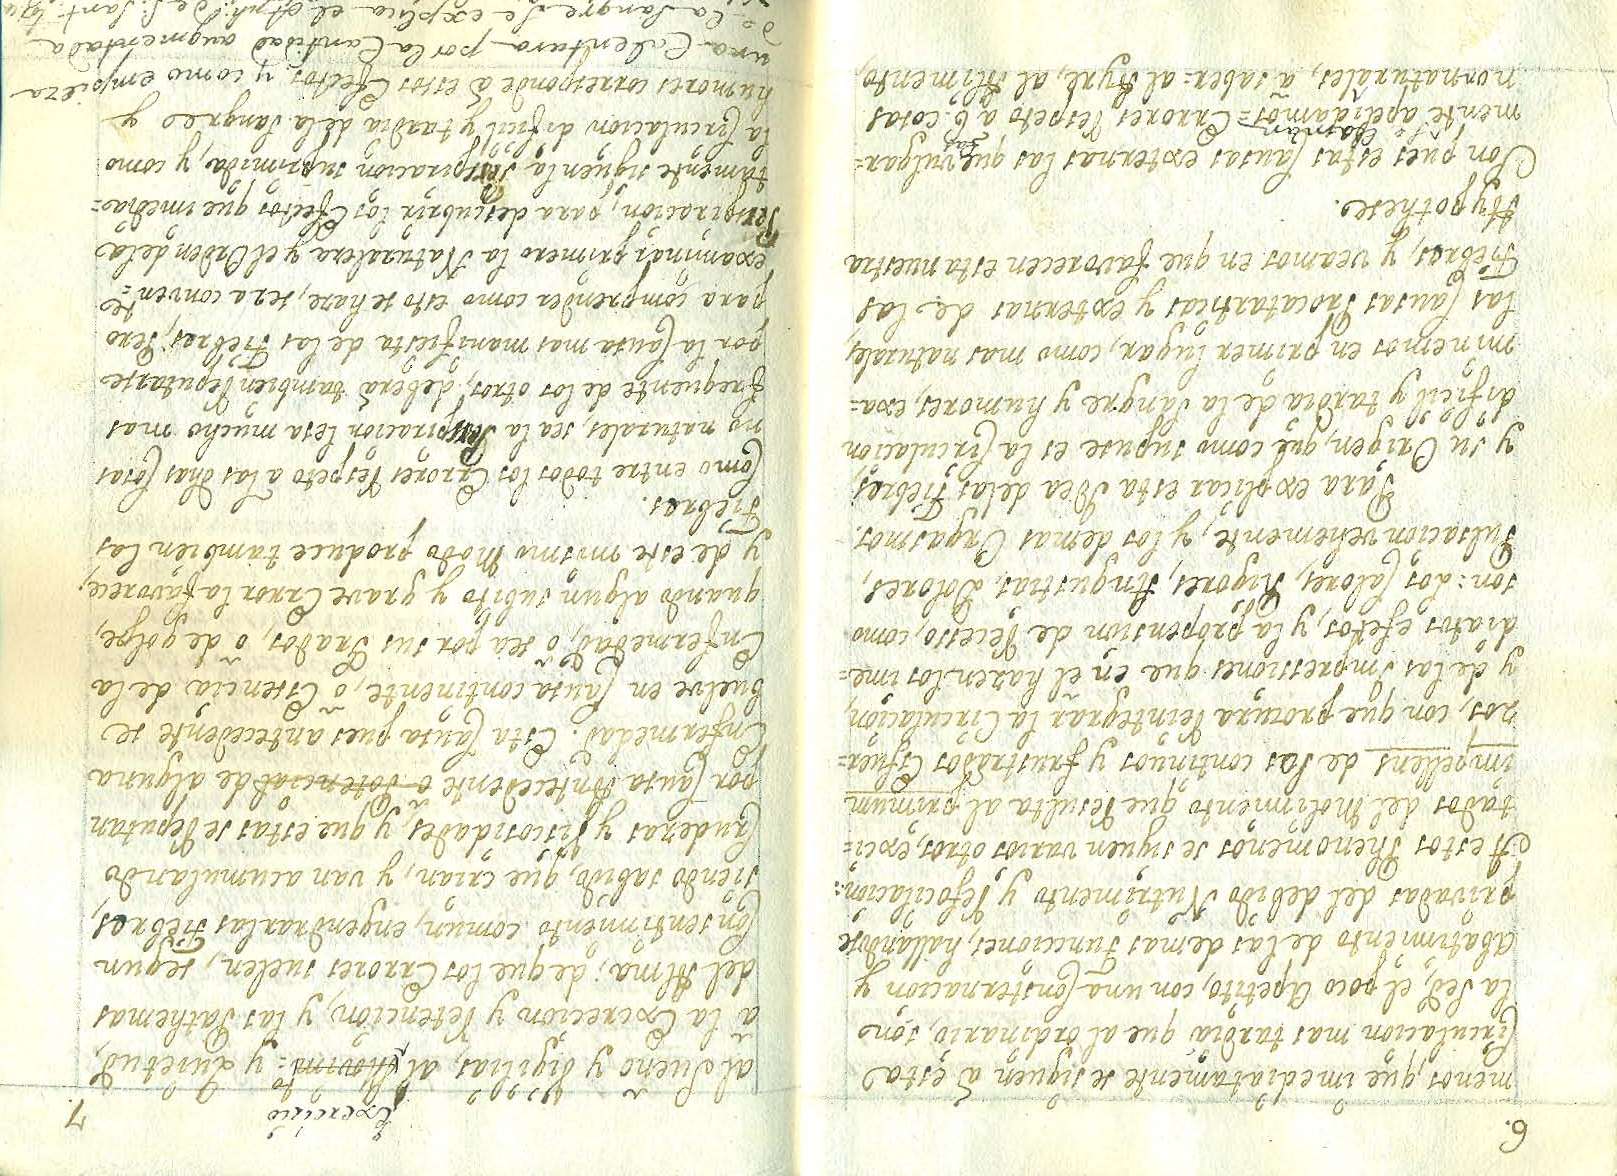 6.
menos, que imediatamente se siguen à esta
Circulacion mas tardia que al ordinario, son
la Sed, el poco Apetito, con una Consternacion y
Abatimiento de las demas Funcciones, hallandose
privadas del debido Nutrimento y Refocilacion:
A estos Phenomenos se siguen varios otros, exci=
tados del Molimento que resulta al primum
impellens de sas continuos y frustrados Esfuer=
zos, con que procura reintegrar la Circulacion,
y de las impressiones que en el hazen los ime=
diatos efetos, y la propension de recesso, como
son: Los Calores, Rigores, Angustias, Dolores,
Pulsacion vehemente, y los demas Orgasmos.
Para explicar esta Idea de las Fiebres,
y su Origen, que como supuse es la Circulacion
dificil y tardia de la Sangre y humores, exa=
minemos en primer lugar, como mas naturales,
las Causas Procatarticas y externas de las
Fiebres, y veamos en que favorecen esta nuestra
Hypothese.
Son pues estas Causas externas las que vulgar=
mente apellidamos= Errores respeto a 6. cosas
nonaturales, à saber= al Ayre, al Alimento,
7.
Exercicio
al Sueño y Vigilias, al y Quietud,
à la Excrecion y Retencion, y las Pathemas
del Alma; de que los Errores suelen, segun
Consentimiento comun, engendrar las Fiebres,
siendo sabido, que crian, y van acumulando
Crudezas y Viscosidades, y que estas se reputan
por Causa Antecedente o Potencial de alguna
Enfermedad. Esta Causa pues antecedente se
buelve en Causa continente, ò Essencia de la
Enfermedad, ò sea por sus Grados, ò de golpe,
quando algun subito y grave Error la favorece,
y de este mismo Modo produce tambien las
Fiebres.
Como entre todos los Errores respeto a las dhas Cosas
no naturales, sea la Perspiracion lesa mucho mas
frequente de los otros, deberà tambien reputarse
por la Causa mas manifiesta de las Fiebres; Pero
para comprender como esto se haze, sera conven=te
examinar primero la Naturaleza y el Orden de la
Perspiracion, para descubrir los Efectos que imedia=
tamente siguen la Perspiracion suprimida, y como
la Circulacion dificil y tardia de la Sangre y
humores corresponde à essos Efectos, y como empieza
una Calentura por la Cantidad augmentada
de la Sangre se explica el